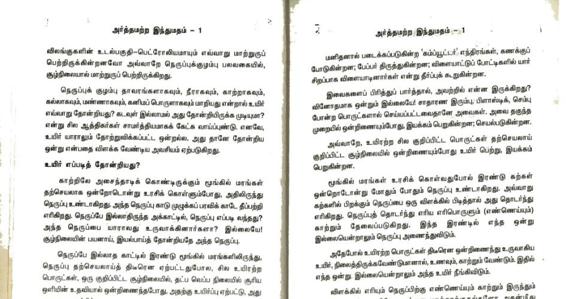 அர்த்தமற்ற இந்துமதம் - 1
விலங்குகளின் உடல்பகுதி-பெட்ரோலியமாயும் எவ்வாறு மாற்றுருப்
பெற்றிருக்கின்றனவோ அவ்வாறே நெருப்புக்குழம்பு பலவகையில்,
சூழ்நிலையால் மாற்றுருப் பெற்றிருக்கிறது.
நெருப்புக் குழம்பு தாவரங்களாகவும், நீராகவும், காற்றாகவும்,
கல்லாகவும், மண்ணாகவும், கனிமப் பொருளாகவும் மாறியது என்றால் உயிர்
எவ்வாறு தோன்றியது? கடவுள் இல்லாமல் அது தோன்றியிருக்க முடியுமா?
என்று சில ஆத்திகர்கள் சாமர்த்தியமாகக் கேட்க வாய்ப்புண்டு. எனவே,
உயிர் யாராலும் தோற்றுவிக்கப்பட்ட ஒன்றல்ல. அது தானே தோன்றிய
ஒன்று என்பதை விளக்க வேண்டிய அவசியம் ஏற்படுகிறது.
உயிர் எப்படித் தோன்றியது?
காற்றிலே அசைந்தாடிக் கொண்டிருக்கும் மூங்கில் மரங்கள்
தற்செயலாக ஒன்றோடொன்று உரசிக் கொள்ளும்போது, அதிலிருந்து
நெருப்பு உண்டாகிறது. அந்த நெருப்பு காடு முழுக்கப் பரவிக் காடே தீப்பற்றி
எரிகிறது. நெருப்பே இல்லாதிருந்த அக்காட்டில், நெருப்பு எப்படி வந்தது?
அந்த நெருப்பை யாராவது உருவாக்கினார்களா? இல்லையே!
சூழ்நிலையின் பயனாய், இயல்பாய்த் தோன்றியதே அந்த நெருப்பு.
நெருப்பே இல்லாத காட்டில் இரண்டு மூங்கில் மரங்களிலிருந்து,
நெருப்பு தற்செயலாய்த் திடீரென ஏற்பட்டதுபோல, சில உயிரற்ற
பொருட்கள், ஒரு குறிப்பிட்ட சூழ்நிலையில், தட்ப வெப்ப நிலையில் சூரிய
ஒளியின் உதவியால் ஒன்றிணைந்தபோது, அதற்கு உயிர்ப்பு ஏற்பட்டது. அது
அர்த்தமற்ற இந்துமதம் - 1
மனிதனால் படைக்கப்படுகின்ற 'கம்ப்யூட்டர்' எந்திரங்கள், கணக்குப்
போடுகின்றன; பேப்பர் திருத்துகின்றன; விளையாட்டுப் போட்டிகளில் யார்
சிறப்பாக விளையாடினார்கள் என்று தீர்ப்புக் கூறுகின்றன.
இவைகளைப் பிரித்துப் பார்த்தால், அவற்றில் என்ன இருக்கிறது?
வினோதமாக ஒன்றும் இல்லையே! சாதாரண இரும்பு, பிளாஸ்டிக், செம்பு
போன்ற பொருட்களால் செய்யப்பட்டவைதானே அவைகள். அவை தகுந்த
முறையில் ஒன்றிணையும்போது, இயக்கம் பெறுகின்றன; செயல்படுகின்றன.
அவ்வாறே, உயிரற்ற சில குறிப்பிட்ட பொருட்கள் தற்செயலாய்
குறிப்பிட்ட சூழ்நிலையில் ஒன்றிணையும்போது உயிர் பெற்று, இயக்கம்
பெறுகின்றன.
மூங்கில் மரங்கள் உரசிக் கொள்வதுபோல் இரண்டு கற்கள்
ஒன்றோடொன்று மோதும் போதும் நெருப்பு உண்டாகிறது. அவ்வாறு
கற்களில் பிறக்கும் நெருப்பை ஒரு விளக்கில் பிடித்தால் அது தொடர்ந்து
எரிகிறது. நெருப்புத் தொடர்ந்து எரிய எரிபொருளும் (எண்ணெய்யும்)
காற்றும் தேவைப்படுகிறது. இந்த இரண்டில் எந்த ஒன்று
இல்லையென்றாலும் நெருப்பு அணைந்துவிடும்.
அதேபோல் உயிரற்ற பொருட்கள் திடீரென ஒன்றிணைந்து உருவாகிய
உயிர், நிலைத்திருக்கவேண்டுமானால், உணவும், காற்றும் வேண்டும். இதில்
எந்த ஒன்று இல்லையென்றாலும் அந்த உயிர் நீங்கிவிடும்.
விளக்கில் எரியும் நெருப்பிற்கு எண்ணெய்யும் காற்றும் இருந்தும்